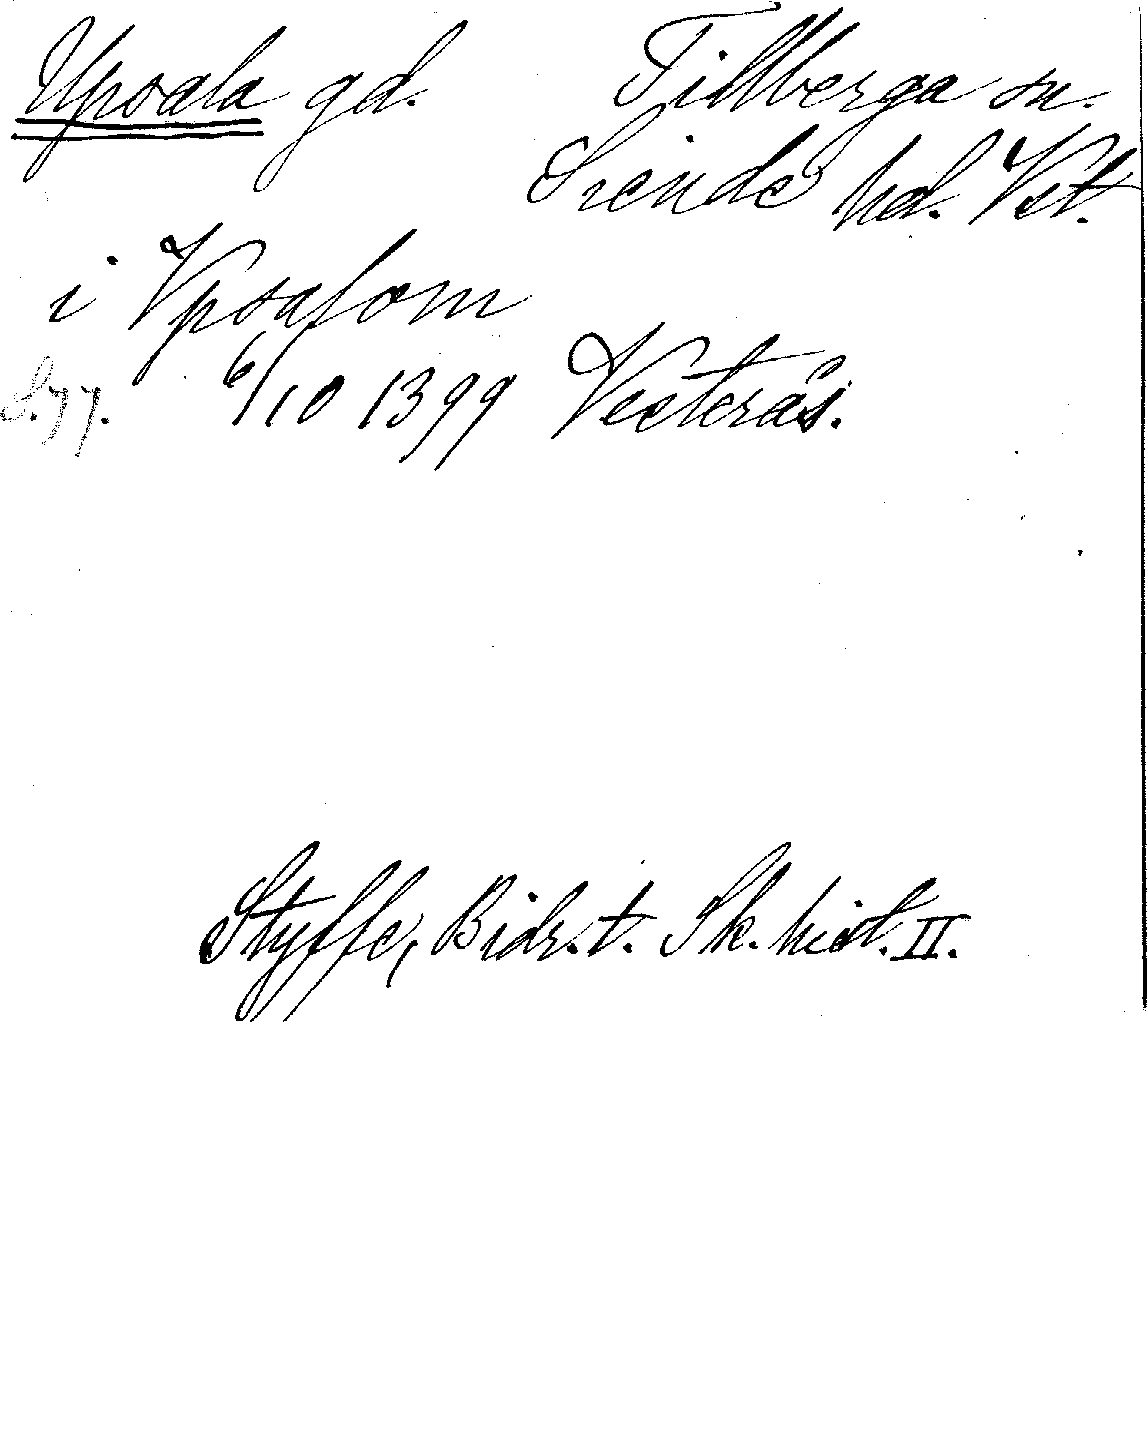 Upsala gd. Tillberga sn.
Siende hd. Vst.
i Vpsalom
S. 77. 6/10 1399 Vesterås.
Styffe, Bidr. t. Sk. hist. II.